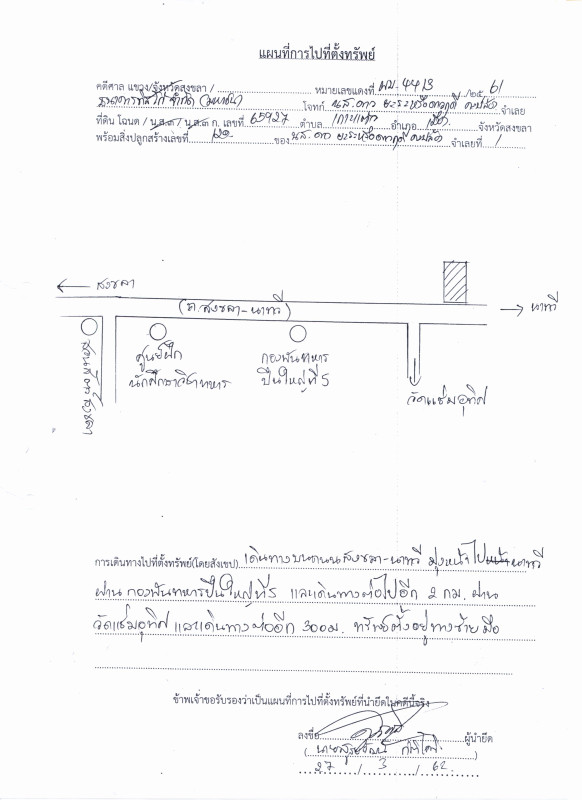 แผนที่การไปที่ตั้งทรัพย์
คดีศาล แขวง/จังหวัดสงขลา / หมายเลขแดงที่ ผบ.4413 /๒๕ 61
โจทก์ น.ส.ดาว จำเลย
ที่ดิน โฉนด / น.ส.๓ / น.ส.๓ ก. เลขที่ 65927 ตำบล เกาะแต้ว อำเภอ เมือง จังหวัดสงขลา
พร้อมสิ่งปลูกสร้างเลขที่ ของ น.ส.ดาว จำเลยที่ 1
สงขลา
(ถ.สงขลา-นาทวี)
นาทวี
ศูนย์ฝึก
นักศึกษาวิชาทหาร
กองพันทหาร
ปืนใหญ่ที่ 5
วัดแช่มอุทิศ
การเดินทางไปที่ตั้งทรัพย์(โดยสังเขป) เดินทางบนถนนสงขลา-นาทวี มุ่งหน้าไปนาทวี
ผ่าน กองพันทหารปืนใหญ่ที่ 5 และเดินทางต่อไปอีก 2 กม. ผ่าน
วัดแช่มอุทิศ และเดินทางต่ออีก 300ม. ทรัพย์ตั้งอยู่ทางซ้ายมือ
ข้าพเจ้าขอรับรองว่าเป็นแผนที่การไปที่ตั้งทรัพย์ที่นำยึดในคดีนี้จริง
ลงชื่อ ผู้นำยึด
27 / 3 / 62